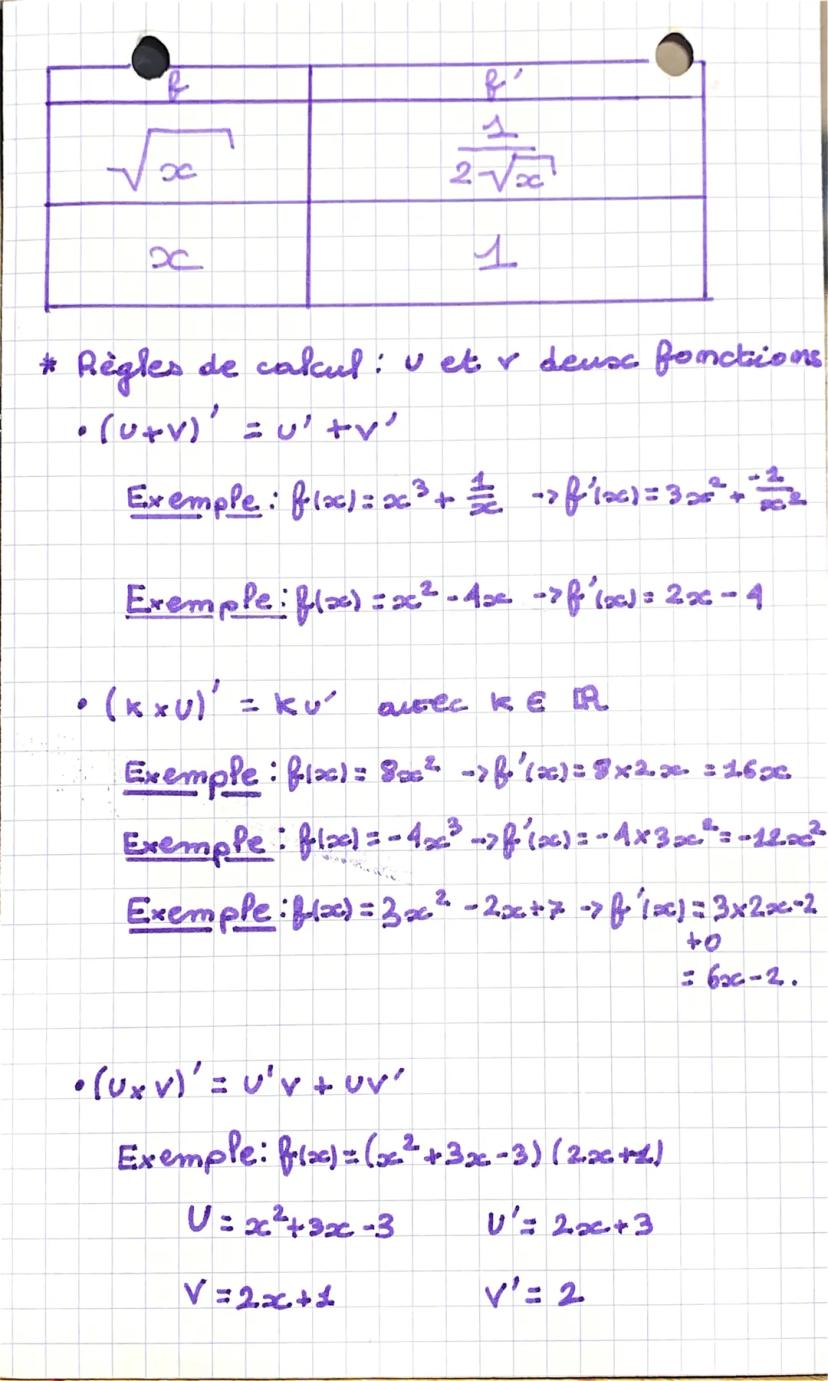 f f'
√x 1/(2√x)
x 1
* Règles de calcul : U et V deux fonctions
• (U+V)' = U' + V'
Exemple : f(x) = x³ + 1/x -> f'(x) = 3x² + -1/x²
Exemple : f(x) = x² - 4x -> f'(x) = 2x - 4
• (K × U)' = KU' avec K ∈ ℝ
Exemple : f(x) = 8x² -> f'(x) = 8×2x = 16x
Exemple : f(x) = -4x³ -> f'(x) = -4×3x² = -12x²
Exemple : f(x) = 3x² - 2x + 7 -> f'(x) = 3×2x-2
+0
= 6x - 2.
• (U × V)' = U'V + UV'
Exemple : f(x) = (x² + 3x - 3) (2x + 1)
U = x² + 3x - 3 U' = 2x + 3
V = 2x + 1 V' = 2